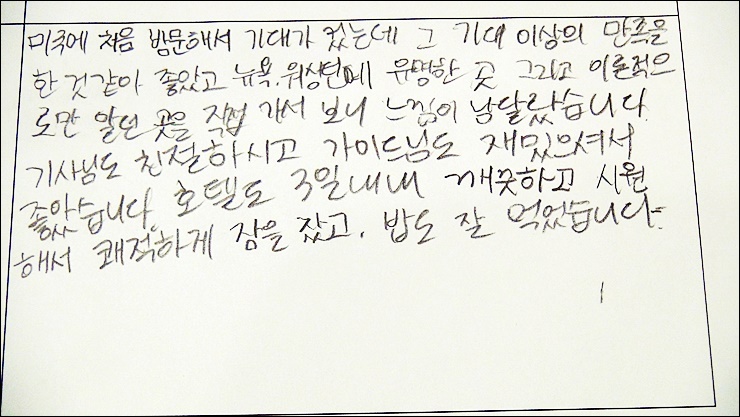 미국에 처음 방문해서 기대가 컸는데 그 기대 이상의 만족을
한 것 같아 좋았고 뉴욕, 워싱턴에 유명한 곳 그리고 이론적으
로만 알던 곳을 직접 가서 보니 느낌이 남달랐습니다.
기사님도 친절하시고 가이드님도 재밌으셔서
좋았습니다. 호텔도 3일내내 깨끗하고 시원
해서 쾌적하게 잠을 잤고, 밥도 잘 먹었습니다.